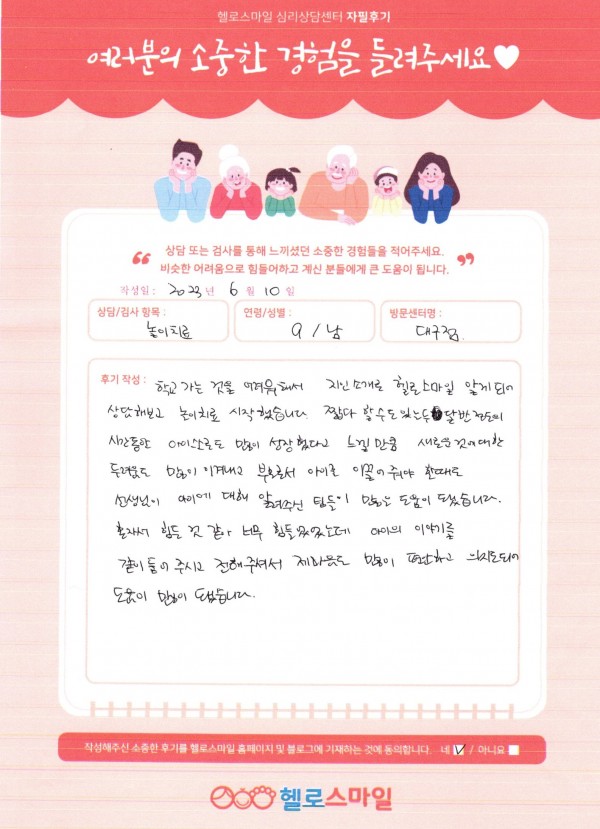 헬로스마일 심리상담센터 자필후기
여러분의 소중한 경험을 들려주세요
상담 또는 검사를 통해 느끼셨던 소중한 경험들을 적어주세요.
비슷한 어려움으로 힘들어하고 계신 분들에게 큰 도움이 됩니다.
작성일 : 2023 년 6 월 10 일
상담/검사 항목 : 놀이치료
연령/성별 : 9 / 남
방문센터명 : 대구점
후기 작성 : 학교 가는 것을 어려워해서 지인소개로 헬로스마일 알게 되어
상담해보고 놀이치료 시작했습니다 짧다 할 수도 있는 두 달 반 정도의
시간동안 아이 스스로도 많이 성장했다고 느낄 만큼 새로운 것에 대한
두려움도 많이 이겨내고 부모로서 아이를 이끌어 줘야 할 때도
선생님이 아이에 대해 알려주신 팁들이 많은 도움이 되었습니다.
혼자서 힘든 것 같아 너무 힘들었었는데 아이의 이야기를
같이 들어 주시고 전해주셔서 제 마음도 많이 편안하고 의지도 되어
도움이 많이 되었습니다.
작성해주신 소중한 후기를 헬로스마일 홈페이지 및 블로그에 기재하는 것에 동의합니다. 네 / 아니요
헬로스마일